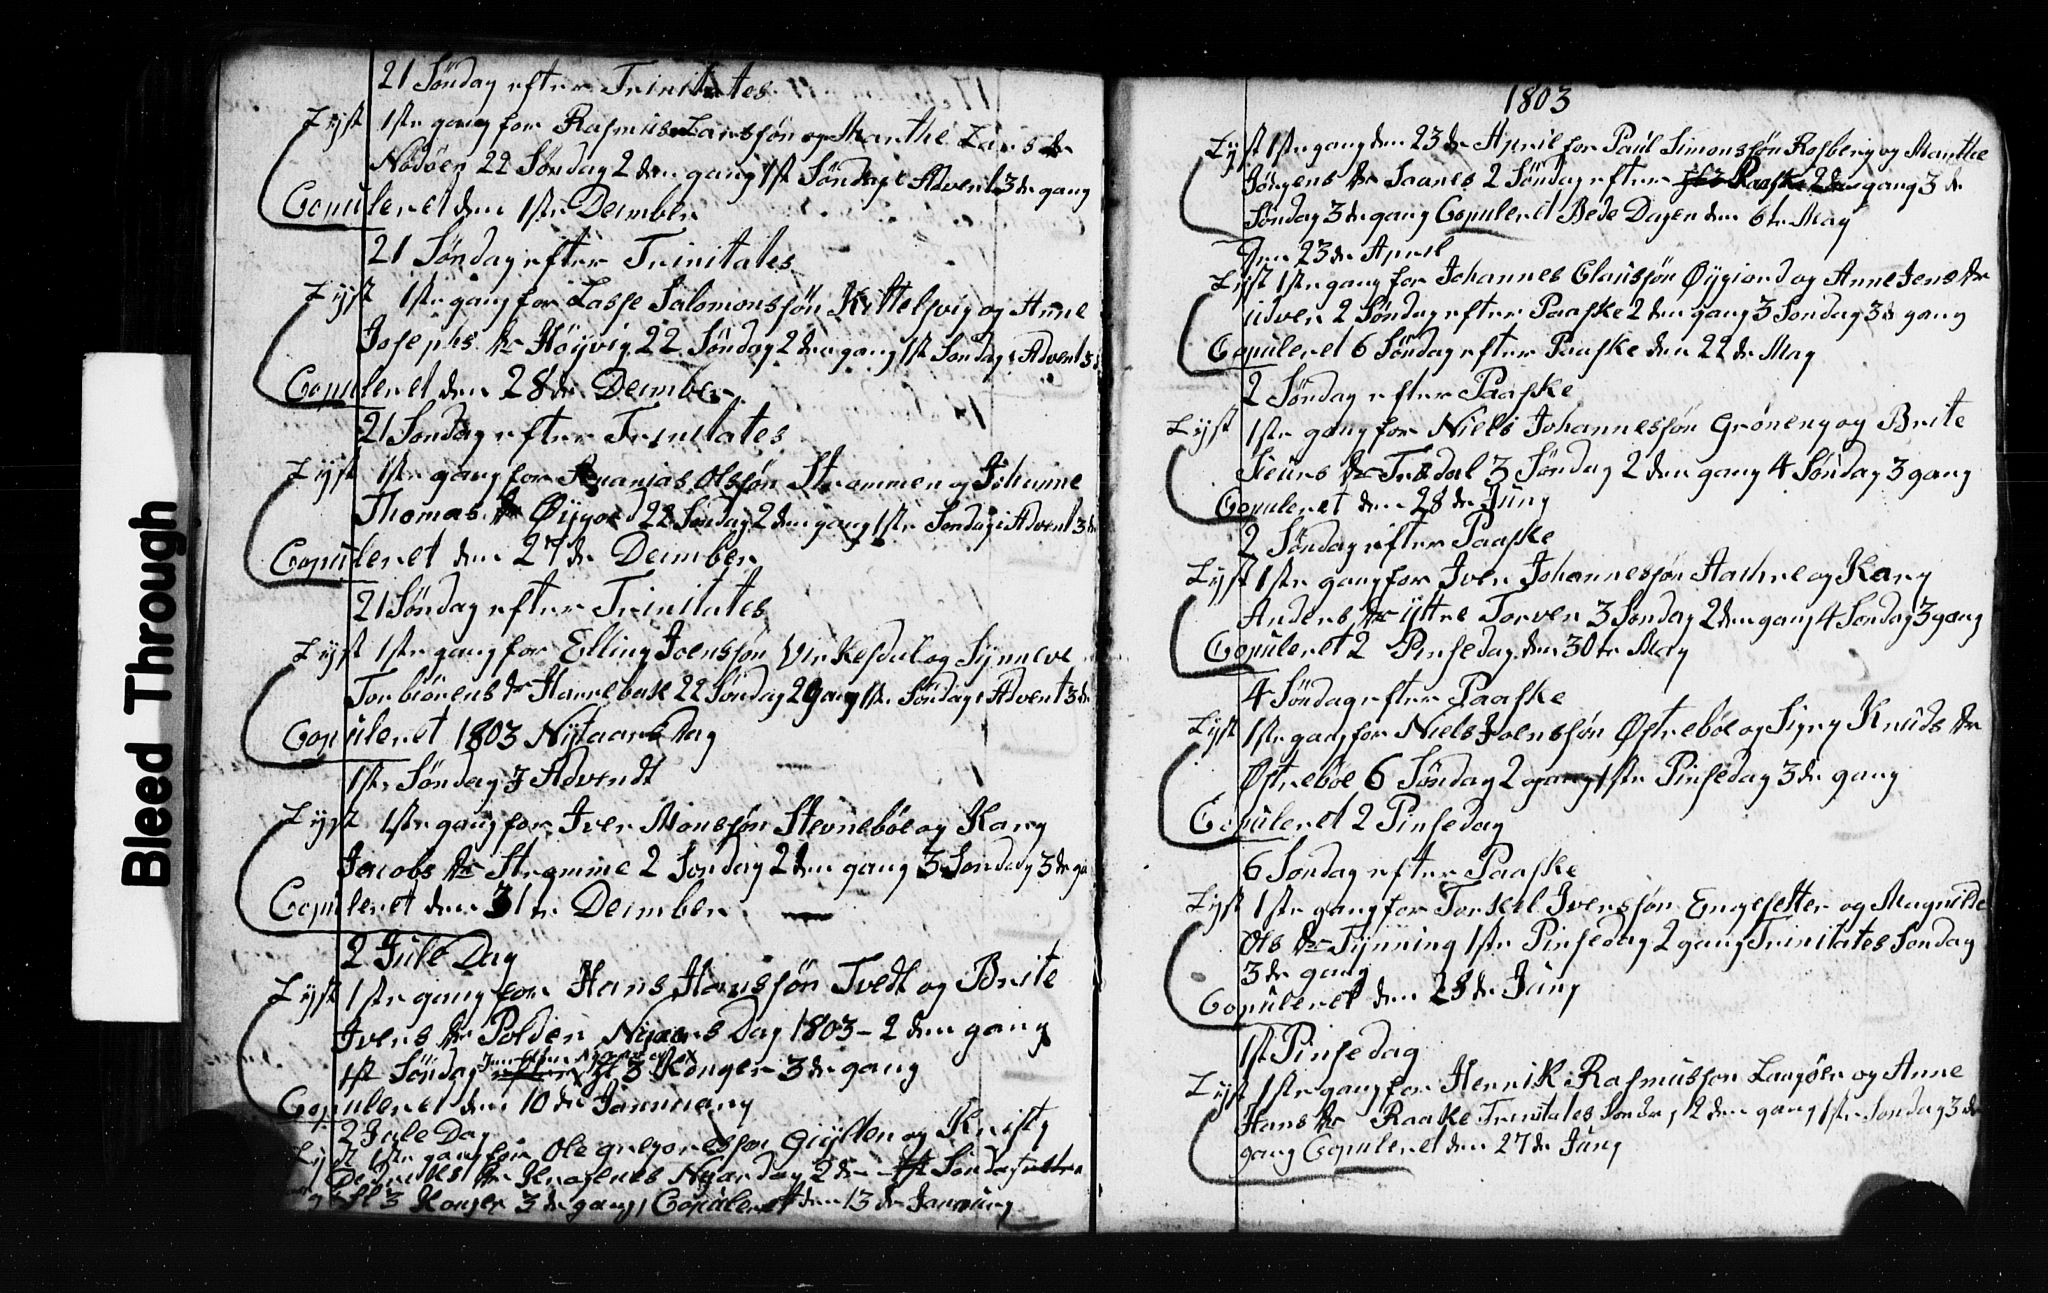 Bleed Through
21 Söndag efter Trinitates
Lÿst 1ste gang for Rasmus Larssøn og Marthe Lars dr
Nodöen 22 Söndag 2den gang 1st Söndag i Advent 3de gang
Copuleret den 1ste December
21 Söndag efter Trinitates
Lÿst 1ste gang for Lasse Salomonssøn Kittelsvig og Anne
Josephs dr Höÿvig 22 Söndag 2den gang 1st Söndag i Advent 3d
Copuleret den 28de December
21 Söndag efter Trinitates
Lÿst 1ste gang for Ananias Olssøn Strammen og Johanne
Thomas dr Øÿgord 22 Söndag 2den gang 1ste Söndag i Advent 3d
Copuleret den 27de December
21 Söndag efter Trinitates
Lÿst 1ste gang for Elling Joenssøn Virkesdal og Sÿnneve
Torbiörens dr Harrebak 22 Söndag 2 gang 1ste Söndag i Advent 3de
Copuleret 1803 Nÿtaars Dag
1ste Söndag J Advendt
Lÿst 1ste gang for Iver Monssøn Stevnebøe og Kary
Jacobs dr Stramme 2 Söndag 2den gang 3 Söndag 3de ga
Copuleret den 31te December
2 Jule Dag
Lÿst 1ste gang for Hans Hanssøn Tvedt og Brite
Ivers dr Polden Nÿaars Dag 1803 - 2den gang
1st Söndag efter Hl 3 Konger 3de gang
Copuleret den 10de Januuary
2 Jule Dag
Lÿst 1ste gang for Ole Gregoriessøn Giÿtten og Kristy
dr Nyaardag 2de 1st Söndag efter
Hl 3 Konger 3de gang Copuleret den 13de Januuary
1803
Lÿst 1ste gang den 23de April for Paul Simonssøn Rosberg og Marthe
Jörgens dr Saanes 2 Söndag efter Paaske 2den gang 3de
Söndag 3de gang Copuleret Bede Dagen den 6te May
Den 23de April
Lÿst 1ste gang for Johannes Clausssøn Øÿgiord og Anne Jens dr
udven 2 Söndag efter Paaske 2den gang 3 Söndag 3de gang
Copuleret 6 Söndag efter Paaske den 22de May
2 Söndag efter Paaske
Lÿst 1ste gang for Niels Johannessøn Gröneng og Brite
Sieurs dr Tredal 3 Söndag 2den gang 4 Söndag 3 gang
Copuleret den 28de Juny
2 Söndag efter Paaske
Lÿst 1ste gang for Iver Johannessøn og Kary
Anders dr ÿttre Torven 3 Söndag 2den gang 4 Söndag 3 gang
Copuleret 2 Pinsedag den 30te May
4 Söndag efter Paaske
Lÿst 1ste gang for Niels Joenssøn Østrebøe og Sigry Knuds dr
Østrebøe 6 Söndag 2 gang 1ste Pinsedag 3de gang
Copuleret 2 Pinsedag
6 Söndag efter Paaske
Lÿst 1ste gang for Torkel Iverssøn Engesetter og Magnilde
Ols dr Tÿnning 1ste Pinsedag 2 gang Trinitates Söndag
3de gang
Copuleret den 28de Juny
1st Pinsedag
Lÿst 1ste gang for Henrik Rasmussøn Langöen og Anne
Hans dr Raake Trinitates Söndag 2den gang 1ste Söndag 3de
gang Copuleret den 27de Juny